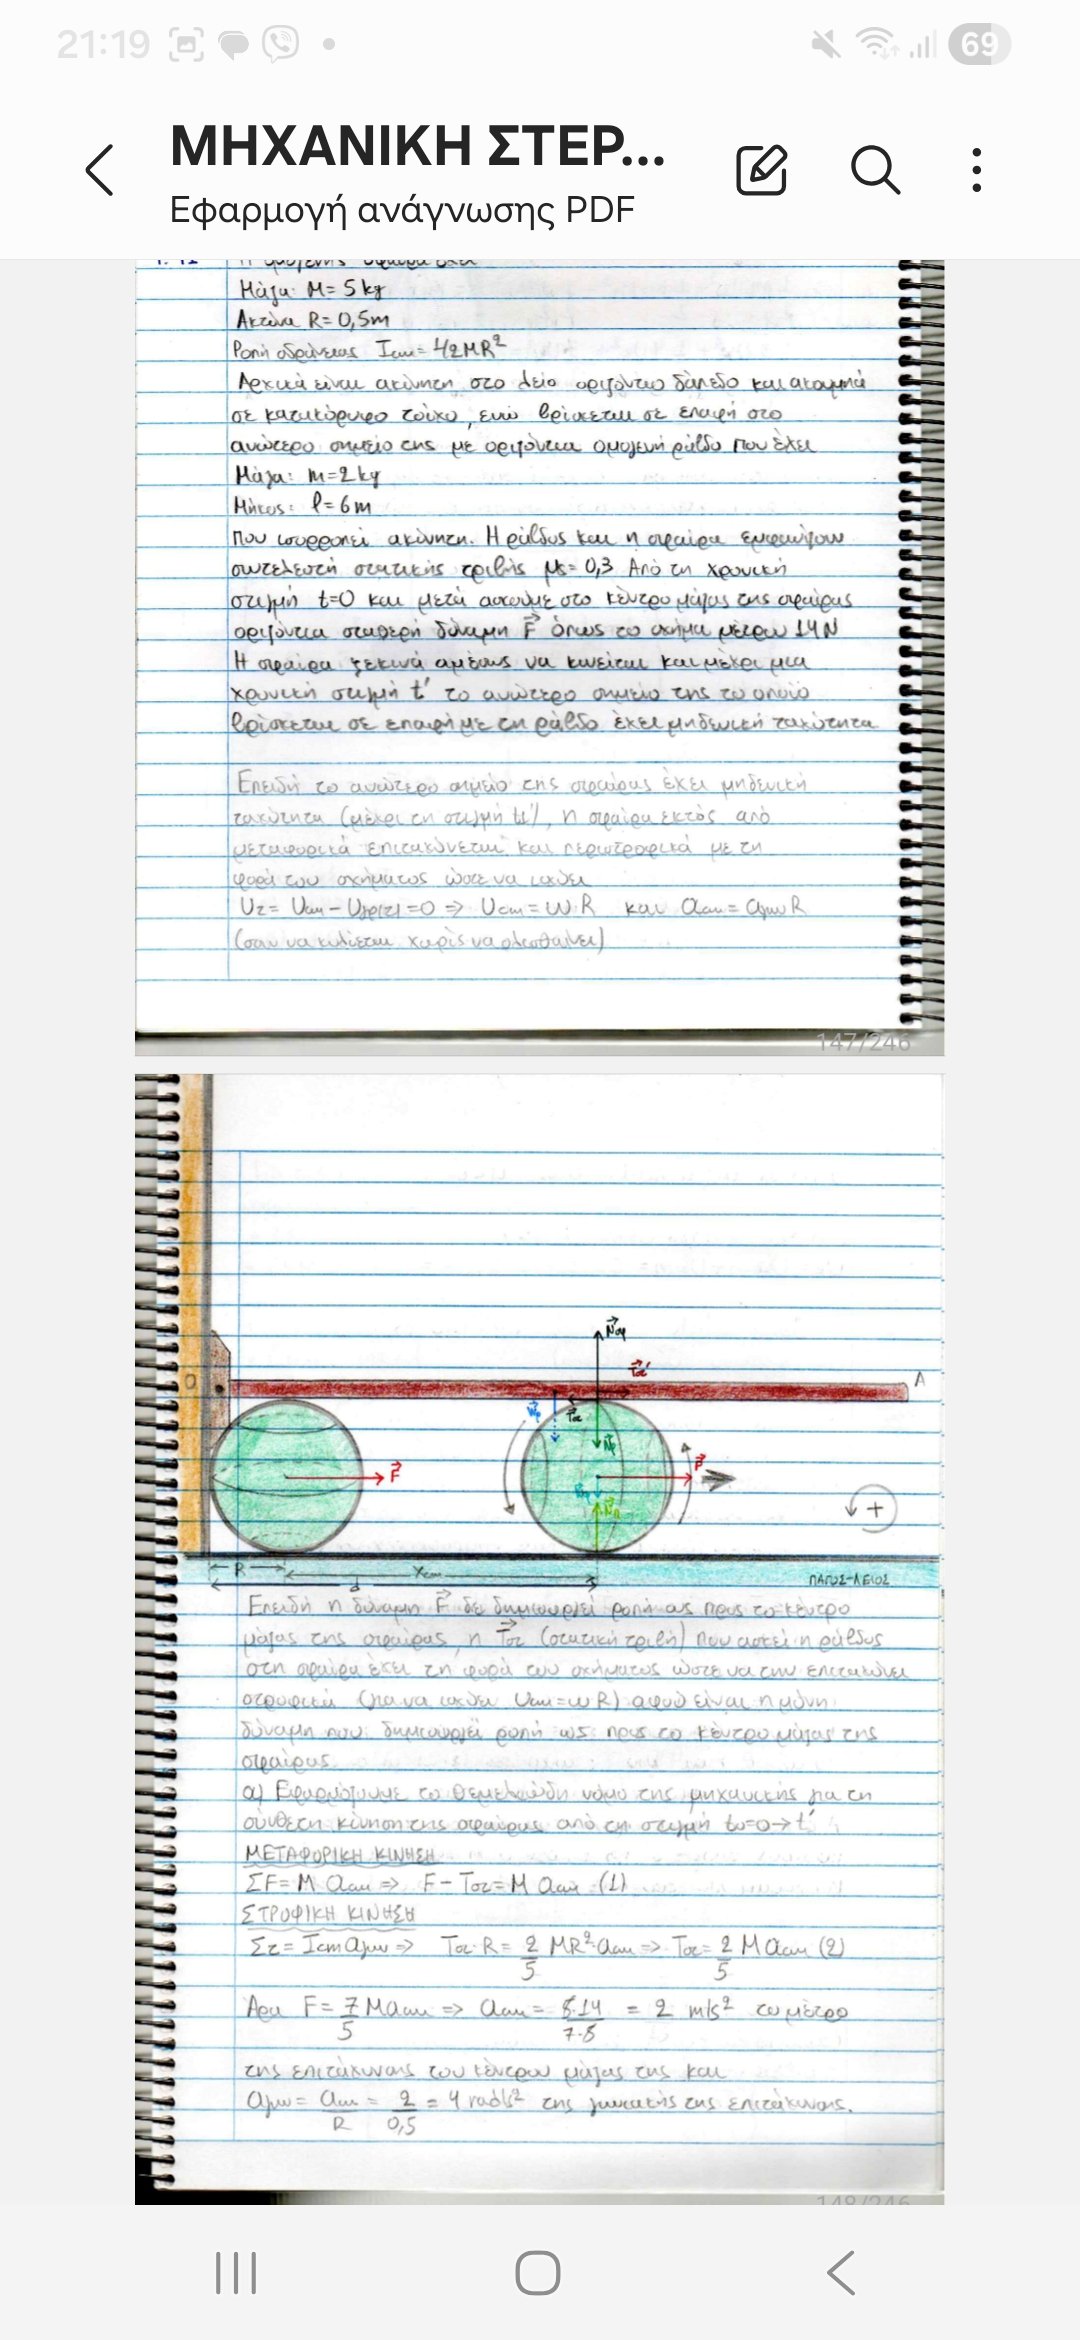 21:19
69
ΜΗΧΑΝΙΚΗ ΣΤΕΡ...
Εφαρμογή ανάγνωσης PDF
Μάζα: M= 5kg
Ακτίνα R= 0,5m
Ροπή αδράνειας Icm= 1/2MR²
Αρχικά είναι ακίνητη στο λείο οριζόντιο δάπεδο και ακουμπά
σε κατακόρυφο τοίχο, ενώ βρίσκεται σε επαφή στο
ανώτερο σημείο της με οριζόντια ομογενή ράβδο που έχει
Μάζα: m=2kg
Μήκος: l=6m
που ισορροπεί ακίνητη. Η ράβδος και η σφαίρα εμφανίζουν
συντελεστή στατικής τριβής μs= 0,3 Από τη χρονική
στιγμή t=0 και μετά ασκούμε στο κέντρο μάζας της σφαίρας
οριζόντια σταθερή δύναμη F⃗ όπως το σχήμα μέτρου 14N
Η σφαίρα ξεκινά αμέσως να κινείται και μέχρι μια
χρονική στιγμή t' το ανώτερο σημείο της το οποίο
βρίσκεται σε επαφή με τη ράβδο έχει μηδενική ταχύτητα
Επειδή το ανώτερο σημείο της σφαίρας έχει μηδενική
ταχύτητα (μέχρι τη στιγμή t'), η σφαίρα εκτός από
μεταφορικά επιταχύνεται και περιστροφικά με τη
φορά του σχήματος ώστε να ισχύει
Uz= Ucm- Uγρ(z)=0 => Ucm=ωR και acm= aγωνR
(σαν να κυλίεται χωρίς να ολισθαίνει)
147/246
O
A
N⃗
F⃗
F⃗
R
Xcm
d
+
ΠΑΓΟΣ-ΛΕΙΟΣ
Επειδή η δύναμη F⃗ δε δημιουργεί ροπή ως προς το κέντρο
μάζας της σφαίρας, η T⃗στ (στατική τριβή) που ασκεί η ράβδος
στη σφαίρα έχει τη φορά του σχήματος ώστε να την επιταχύνει
στροφικά (για να ισχύει Ucm=ωR) αφού είναι η μόνη
δύναμη που δημιουργεί ροπή ως προς το κέντρο μάζας της
σφαίρας.
α) Εφαρμόζουμε το θεμελιώδη νόμο της μηχανικής για τη
σύνθετη κίνηση της σφαίρας από τη στιγμή t0=0→t'
ΜΕΤΑΦΟΡΙΚΗ ΚΙΝΗΣΗ
ΣF= M acm => F- Tστ= M acm (1)
ΣΤΡΟΦΙΚΗ ΚΙΝΗΣΗ
Στ= Icm aγων => Tστ·R= 2/5 MR²·acm => Tστ= 2/5 M acm (2)
Άρα F= 7/5 M acm => acm= 5·14/7·5 = 2 m/s² το μέτρο
της επιτάχυνσης του κέντρου μάζας της και
aγων= acm/R = 2/0,5 = 4 rad/s² της γωνιακής της επιτάχυνσης.
148/246